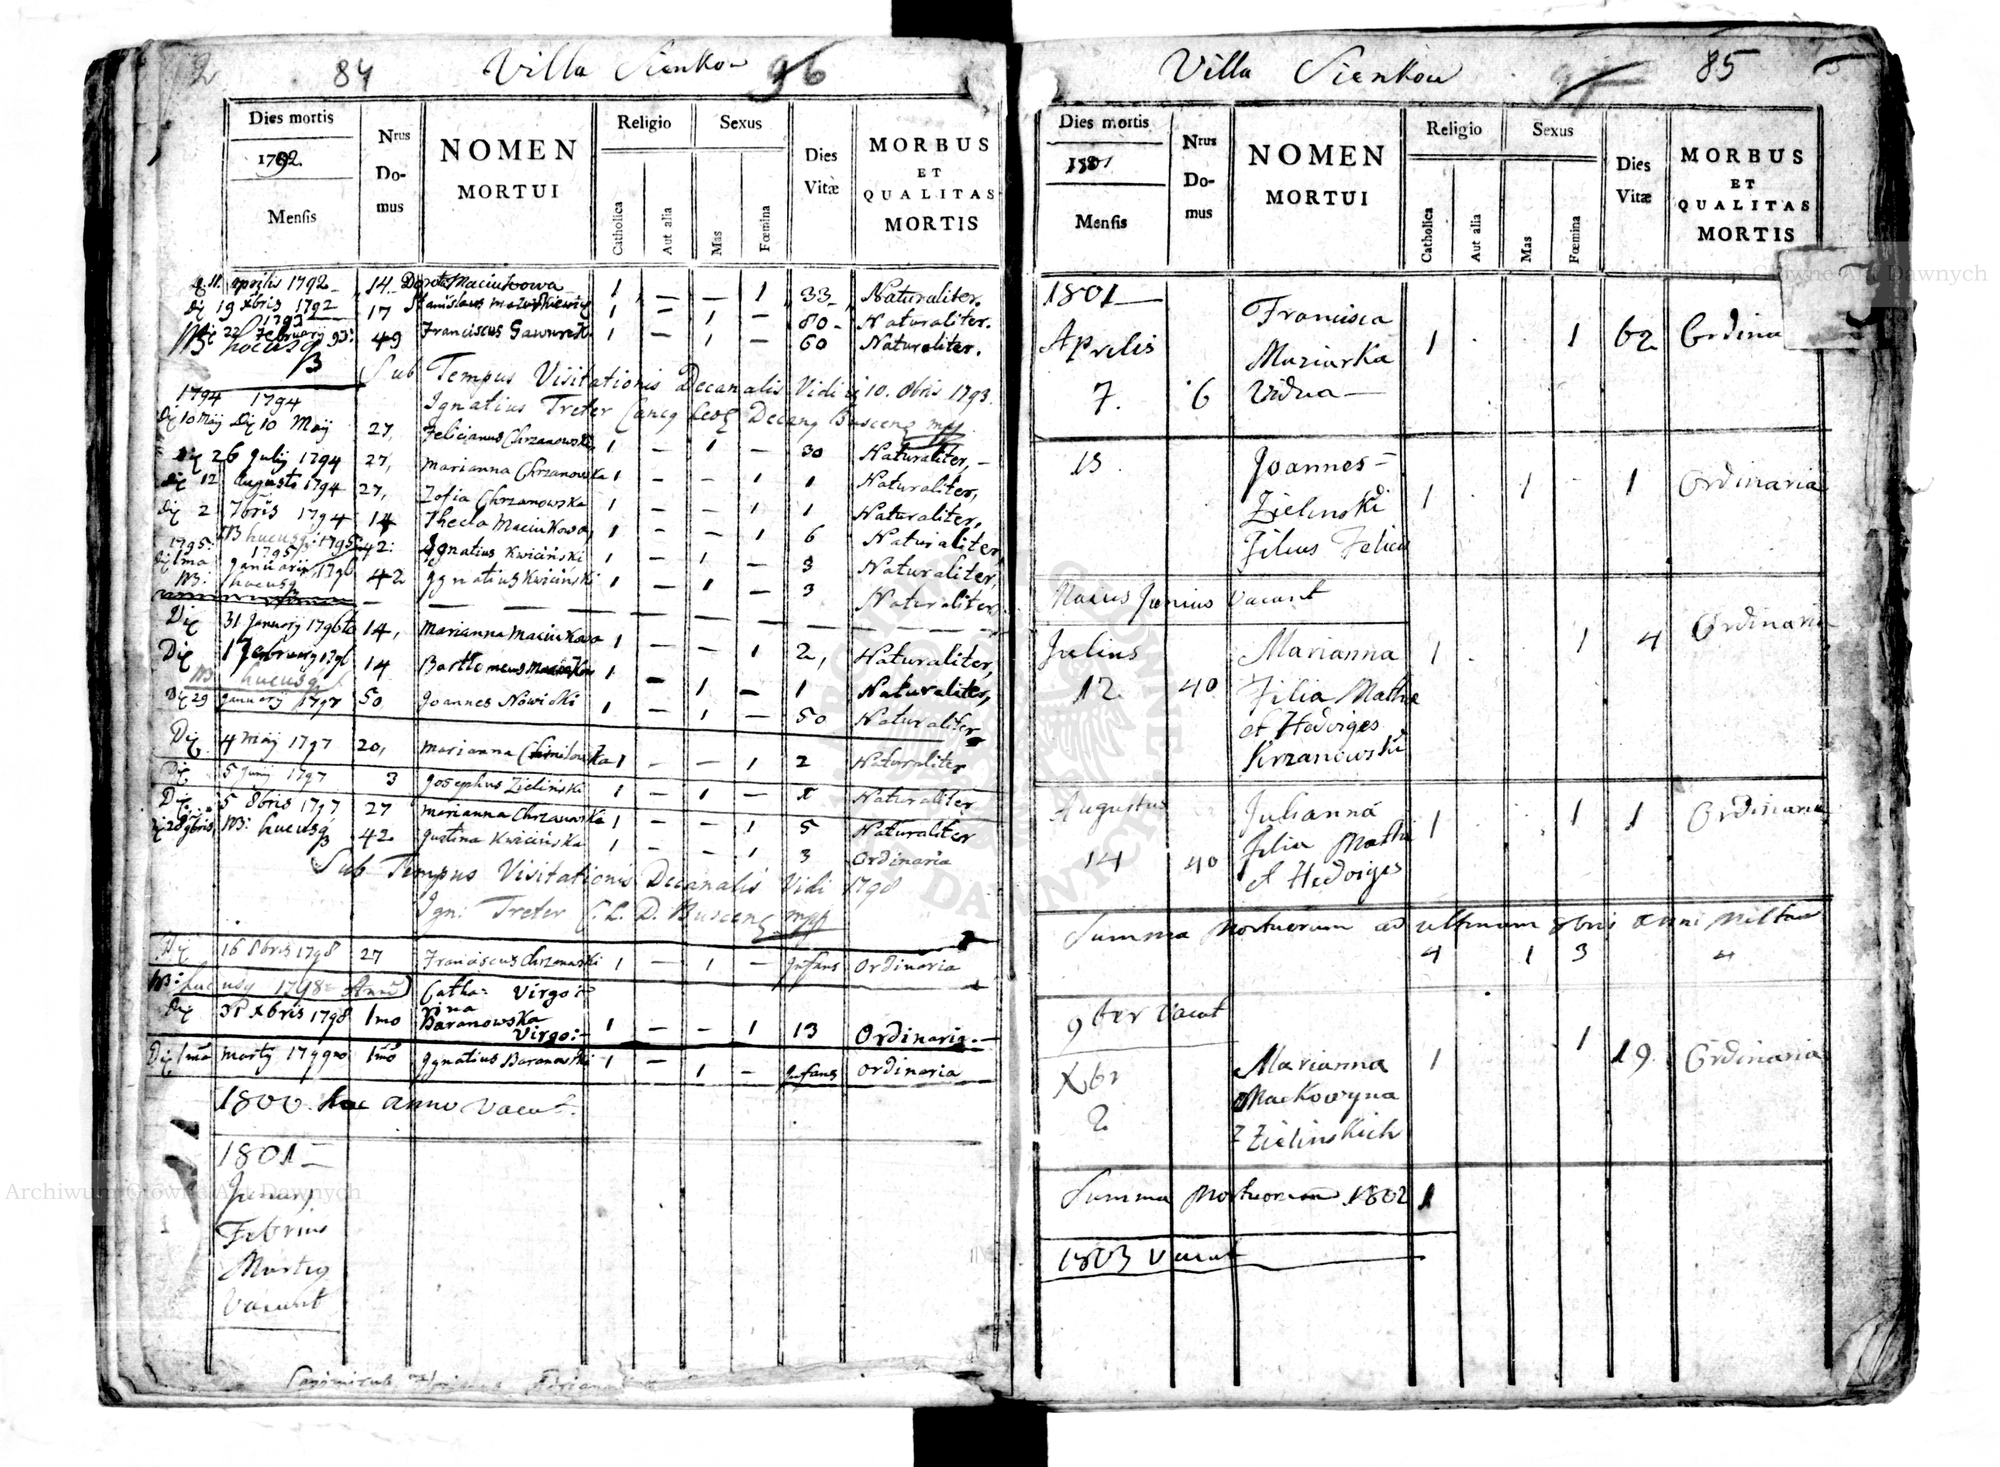 2 84 Villa Sienkow 96
Dies mortis
1792.
Mensis
Nrus
Do-
mus
NOMEN
MORTUI
Religio
Catholica
Aut alia
Sexus
Mas
Fœmina
Dies
Vitæ
MORBUS
ET
QUALITAS
MORTIS
11 aprilis 1792 14 Maciukowa 1 – – 1 33 Naturaliter.
Die 19 xbris 1792 17 Stanislaus 1 – 1 – 80 Naturaliter.
22 February 93 49 Franciscus Gawurek 1 – 1 – 60 Naturaliter.
NB hucusq
Sub Tempus Visitationis Decanalis Vidi 10. 1793.
Ignatius Treter Decang Busceng mp
1794 1794
Die 10 Maij Die 10 Maij 27, Felicianus Chrzanowski 1 – 1 – 30 Naturaliter,
Die 26 July 1794 27, Marianna Chrzanowska 1 – – 1 1 Naturaliter,
Die 12 Augusti 1794 27, Zofia Chrzanowska 1 – – 1 1 Naturaliter,
Die 2 7bris 1794 14 Thecla Maciukowa 1 – – 1 6 Naturaliter,
NB hucusq 1795
1795: 42: Ignatius Kwiciński 1 – 1 – 3 Naturaliter,
Die 1ma January 1796 42 Ignatius Kwiciński 1 – 1 – 3 Naturaliter
NB: hucusq
Die 31 January 1796to 14, Marianna Maciukowa 1 – – 1 2, Naturaliter,
Die 1 February 1796 14 Bartlomeus 1 – 1 – 1 Naturaliter,
NB hucusq
Die 29 January 1797 50 Joannes Nowicki 1 – 1 – 50 Naturaliter
Die 4 maij 1797 20, Marianna 1 – – 1 2 Naturaliter
Die 5 Junij 1797 3 Josephus Zieliński 1 – 1 – Naturaliter
Die 5 8bris 1797 27 Marianna Chrzanowska 1 – – 1 5 Naturaliter
28 9bris NB: hucusq 42 Justina Kwicińska 1 – – 1 3 Ordinaria
Sub Tempus Visitationis Decanalis Vidi 1798
Ign: Treter C. L. D. Busceng mpp
Die 16 8bris 1798 27 Franciscus Chrzanowski 1 – 1 – Infans Ordinaria
NB: hucusq 1798
Die 31 xbris 1798 1mo Catha- Virgo:
rina
Baranowska
Virgo:- 1 – – 1 13 Ordinaria.
Die 1ma marty 1799no 1mo Ignatius Baranowski 1 – 1 – Infans Ordinaria
1800 hoc anno vacat.
1801
January
Febrius
Martig
Vacant
Villa Sienkow 85
Dies mortis
1801
Mensis
Nrus
Do-
mus
NOMEN
MORTUI
Religio
Catholica
Aut alia
Sexus
Mas
Fœmina
Dies
Vitæ
MORBUS
ET
QUALITAS
MORTIS
1801
Aprilis
7. 6
Francisca
Maziarka
Vidua
1 . . 1 62 Ordina
13
Joannes
Zielinski
Filius Felicis
1 . 1 – 1 Ordinaria
Maius Junius vacant
Julius
12 40
Marianna
Filia Mathei
et Hedviges
Krzanowski
1 . 1 4 Ordinaria
Augustus
14 40
Julianna
filia Mathei
et Hedviges
1 1 1 Ordinaria
Summa Mortuorum ad ultimum xbris anni
4 1 3 4
9ber vacat
Xbr
2
Marianna
Mackowyna
z Zielinskich
1 1 19. Ordinaria
Summa Mortuorum 1802 1
1803 vacat
Archiwum Główne Akt Dawnych
Archiwum Główne Akt Dawnych